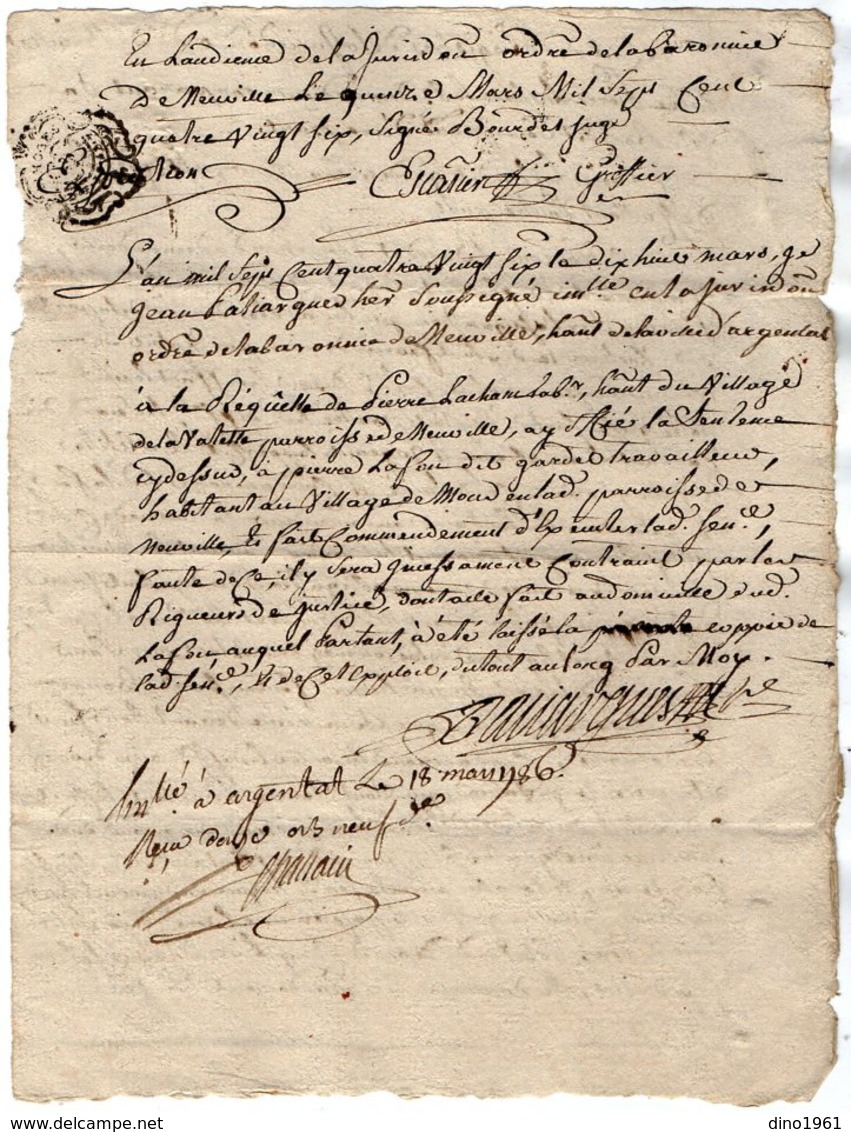 En Laudience de la Jurisdon ordre de la Baronnie
de Neuville Le quinze Mars Mil Sept Cent
quatre Vingt six, Signé Bourdet juge
Greffier
L'an mil Sept Cent quatre Vingt six le dix huit mars, je
Jean soussigné imlle en la jurisdon
ordre de la baronnie de Neuville, hant de la ville d'argentat
à la Réquette de Pierre Lacham labr, hant du Village
de la Valette parroisse de Neuville, ay la Sentence
cy dessus, à pierre Lafon dit garde travailleur,
habitant au Village de en lad. parroisse de
Neuville, Et fait Commendement d'Exécuter lad. sence,
faute de Ce, il y sera Contraint par les
Rigueurs de justice, dont acte fait au domicille dud.
Lafon auquel Partant, à été laissé la coppie de
lad. sence, Et de Cet Exploit, du tout au long Par Moy.
à argentat Le 18 mars 1786.
Reçu douze sols neuf d.
dino1961